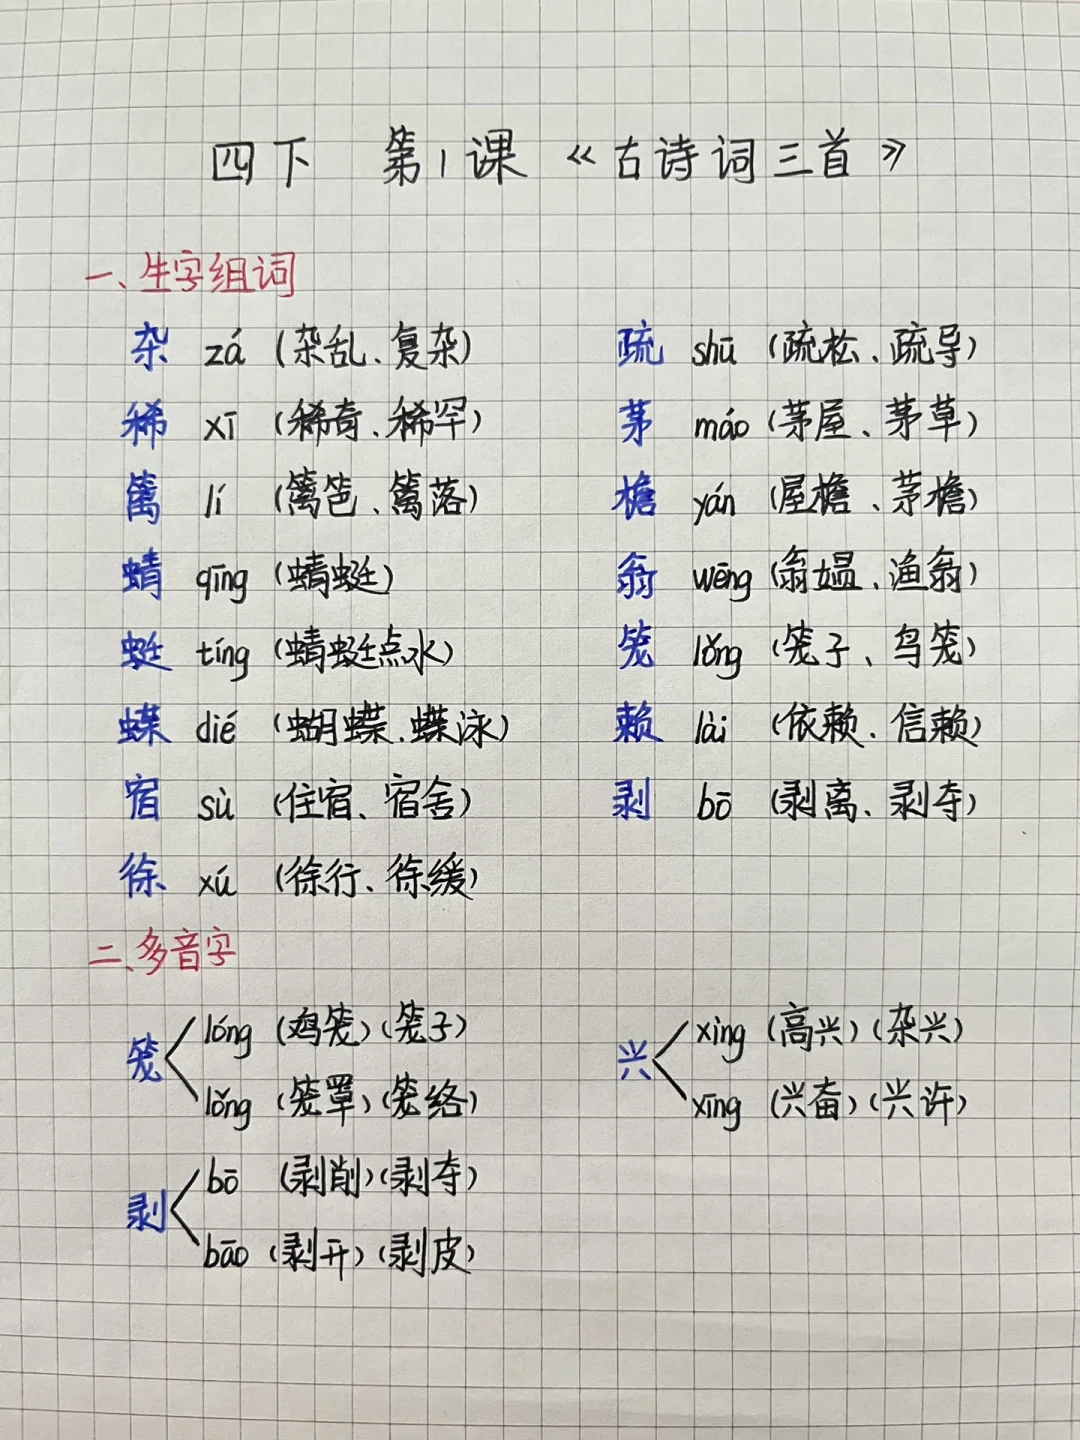 四下 第1课《古诗词三首》
一、生字组词
杂 zá (杂乱、复杂) 疏 shū (疏松、疏导)
稀 xī (稀奇、稀罕) 茅 máo (茅屋、茅草)
篱 lí (篱笆、篱落) 檐 yán (屋檐、茅檐)
蜻 qīng (蜻蜓) 翁 wēng (翁媪、渔翁)
蜓 tíng (蜻蜓点水) 笼 lǒng (笼子、鸟笼)
蝶 dié (蝴蝶、蝶泳) 赖 lài (依赖、信赖)
宿 sù (住宿、宿舍) 剥 bō (剥离、剥夺)
徐 xú (徐行、徐缓)
二、多音字
笼 lóng (鸡笼)(笼子) 兴 xìng (高兴)(杂兴)
lǒng (笼罩)(笼络) xīng (兴奋)(兴许)
剥 bō (剥削)(剥夺)
bāo (剥开)(剥皮)